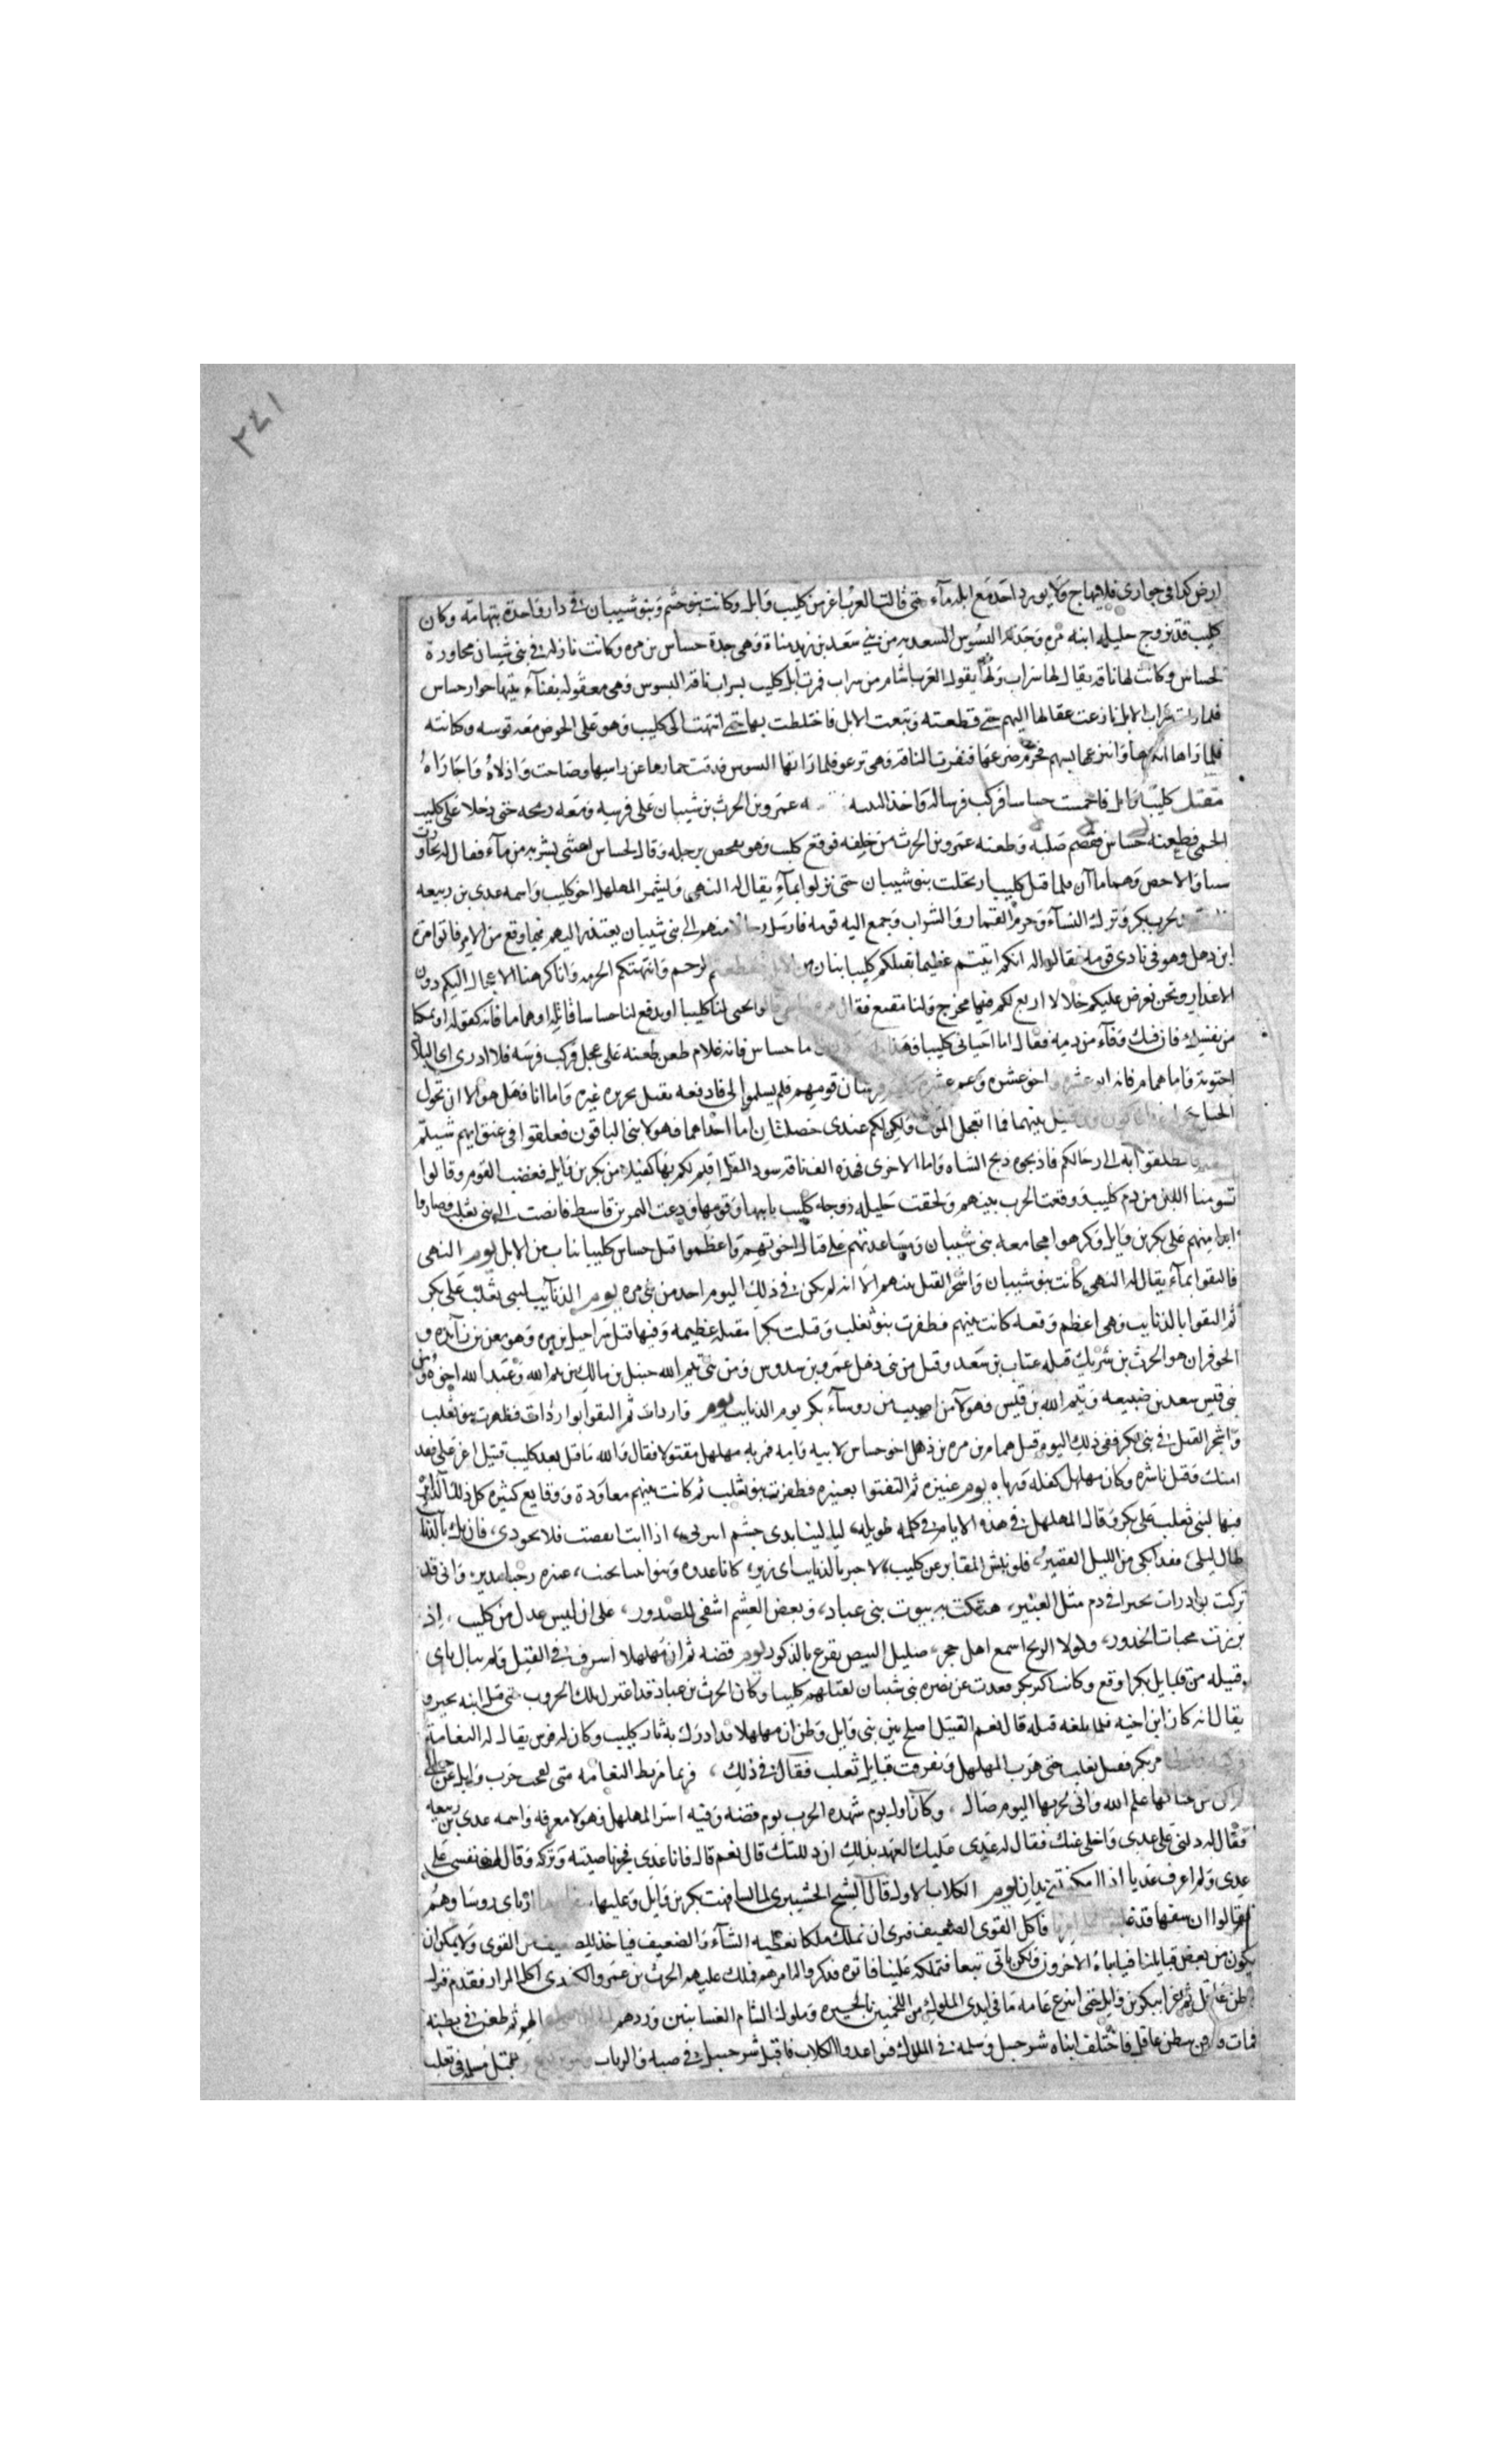 ٢٤١
ارض كذا في جواري فلا يهاج ولا يورد احد مع ابله مآء حتى قالت العرب اعز من كليب وايل وكانت بنو جشم وبنو شيبان في دار واحدة بتهامة وكان
كليب قد تزوج جليله ابنه مره وجدته البسوس السعديه من بني سعد بن زيد مناة وهي جدة جساس بن مره وكانت نازله في بني شيبان مجاورة
لجساس وكانت لها ناقه يقال لها سراب ولها يقول العرب اشام من سراب فمرت ابل كليب بسراب ناقه البسوس وهي معقوله بفنآء بيتها جوار جساس
فلما رات سراب الابل نازعت عقالها اليهم حتى قطعته وتبعت الابل فاختلطت بها حتى انتهت الى كليب وهو على الحوض معه قوسه وكنانته
فلما راها انكرها وانتزع لها بسهم فخرم ضرعها فنفرت الناقه وهي ترعو فلما راتها البسوس قذفت خمارها عن راسها وصاحت واذلاه واجاراه
مقتل كليب وايل فاحمست جساسا فركب فرسا له واخذ الته عمرو بن الحرث بن شيبان على فرسه ومعه رمحه حتى دخلا على كليب
الحمى فطعنه جساس فقصم صلبه وطعنه عمرو بن الحرث من خلفه فوقع كليب وهو يفحص برجله وقال لجساس اغثني بشربه من مآء فقال له تجاوزت
سبا والاحص وهما ماآن فلما قتل كليب ارتحلت بنو شيبان حتى نزلوا بمآء يقال له النهى وليشمر المهلهل اخو كليب واسمه عدي بن ربيعه
لحرب بكر وترك النسآء وحرم القمار والشراب وجمع اليه قومه فارسل رجالا منهم الى بني شيبان يعتذر اليهم فيما وقع من الامر فاتوا مرة
ابن ذهل وهو في نادي قومه فقالوا له انكم اتيتم عظيما بقتلكم كليبا بناب من الابل فقطعتم الرحم وانتهكتم الحرمه وانا كرهنا الاعجال اليكم دون
الاعذار ونحن نعرض عليكم خلالا اربع لكم فيها مخرج ولنا مقنع فقال مره ما هي قالوا تحيى لنا كليبا او تدفع لنا جساسا قاتله او هماما فانه كفو له او تمكنا
من نفسك فان فيك وفاء من دمه فقال اما احياني كليبا فهذا ما لا يكون واما جساس فانه غلام طعن طعنه على عجل فركب فرسه فلا ادري اي البلاد
احتوته واما همام فانه ابو عشره واخو عشره وعم عشره كلهم فرسان قومهم فلم يسلموه الي فادفعه يقتل بجريره غيره واما انا فهل هو الا ان تجول
الخيل جوله فاكون اول قتيل بينهما فما اتعجل الموت ولكن لكم عندي خصلتان اما احداهما فهولا بني الباقون فعلقوا في عنق ايهم شيتم
فانطلقوا به الى رحالكم فاذبحوه ذبح الشاه واما الاخرى فهذه الف ناقه سود المقل اقيم لكم بها كفيلا من بكر بن وايل فغضب القوم وقالوا
تسومنا اللبن من دم كليب ووقعت الحرب بينهم ولحقت جليله زوجه كليب بابيها وقومها ودعت النمر بن قاسط فانضمت الى بني تغلب وصاروا
ايدا منهم على بكر بن وايل وكرهوا مجامعه بني شيبان ومساعدتهم على قتال اخوتهم واعظموا قتل جساس كليبا بناب من الابل يوم النهى
فالتقوا بمآء يقال له النهى كانت بنو شيبان واشتجر القتل بينهم الا انه لم يكن في ذلك اليوم احد من بني مره يوم الذنايب لبني تغلب على بكر
ثم التقوا بالذنايب وهي اعظم وقعه كانت بينهم فظفرت بنو تغلب وقتلت بكرا مقتله عظيمه وفيها قتل شراحيل بن مره وهو معن بن زآيده و
الحوفزان هو الحرث بن شريك قتله عتاب بن سعد وقتل من بني ذهل عمرو بن سدوس ومن بني تيم الله حنبل بن مالك بن تيم الله وعبد الله اخوه ومن
بني قيس سعد بن ضبيعه وتيم الله بن قيس فهولآء من اصيب من روسآء بكر يوم الذنايب يوم واردات ثم التقوا بواردات فظهرت بنو تغلب
واشتجر القتل في بني بكر ففي ذلك اليوم قتل همام بن مره بن ذهل اخو جساس لابيه وامه فمر به مهلهل مقتولا فقال والله ما قتل بعد كليب قتيل اعز علي فقد
امنك وقتل ناشره وكان مهلهل كفله ورباه يوم عنيزه ثم التقوا بعنيزه فظفرت بنو تغلب ثم كانت بينهم معاودة ووقايع كثيره كل ذلك الدايره
فيها لبني تغلب على بكر وقال المهلهل في هذه الايام في كلمه طويله، ليلتنا بذي جشم انيري، اذا انت انقضيت فلا تحوري، فان يك بالذنايب
طال ليلى فقد ابكى من الليل القصير، فلو نبش المقابر عن كليب، لاخبر بالذنايب اي زير، كانا غدوه وبنو ابينا بجنب، عنيزه رحيا مدير، واني قد
تركت بواردات بجيرا في دم مثل العبير، هتكت به بيوت بني عباد، وبعض الغشم اشفى للصدور، على ان ليس عدل من كليب، اذ
برزت مخبات الخدور، ولولا الريح اسمع اهل حجر، صليل البيض يقرع بالذكور يوم قضه ثم ان مهلهلا اسرف في القتل ولم يبال باي
قبيله من قبايل بكر اوقع وكانت اكثر بكر قعدت عن نصره بني شيبان لقتلهم كليبا وكان الحرث بن عباد قد اعتزل تلك الحروب حتى قتل ابنه بجير و
يقال انه كان ابن اخيه فلما بلغه قتله قال نعم القتيل اصلح بين بني وايل وظن ان مهلهلا قد ادرك به ثار كليب وكان له فرس يقال له النعامه
بكر فقتل تغلب حتى هرب المهلهل وتفرقت قبايل تغلب فقال في ذلك، قربا مربط النعامه منى لقحت حرب وايل عن حيال
لم اكن من جناتها علم الله واني لحرها اليوم صال، وكان اول يوم شهده الحرث يوم قضه وفيه اسر المهلهل وهو لا يعرفه واسمه عدي بن ربيعه
فقال له دلني على عدي واخلي عنك فقال له عدي عليك العهد بذلك ان دللتك قال نعم قال فانا عدي فجز ناصيته وتركه وقال لهف نفسي على
عدي ولم اعرف عديا اذا امكنتني يدان يوم الكلاب الاول قال الشيخ الخشيبري لما تسافهت بكر بن وايل وغلبها ارتاى روسا وهم
فقالوا ان سفهانا قد غلبوا على امرنا فاكل القوي الضعيف فنرى ان نملك ملكا نعطيه الشآء والبعير فياخذ للضعيف من القوي ولا يمكن ان
يكون من بعض قبايلنا فياباه الاخرون ولكن ناتي تبعا فنملكه علينا فاتوه فذكروا له امرهم فملك عليهم الحرث بن عمرو الكندي اكل المرار فقدم فنزل
بطن عاقل ثم غزا ببكر بن وايل حتى انتزع عامه ما في ايدي الملوك من اللخميين بالحيره وملوك الشام الغسانيين وردهم ثم طعن في بطنه
فمات ودفن ببطن عاقل فاختلف ابناه شرحبيل وسلمه في الملك فتواعدوا الكلاب فاقبل شرحبيل في ضبه والرباب واقبل سلمه في تغلب